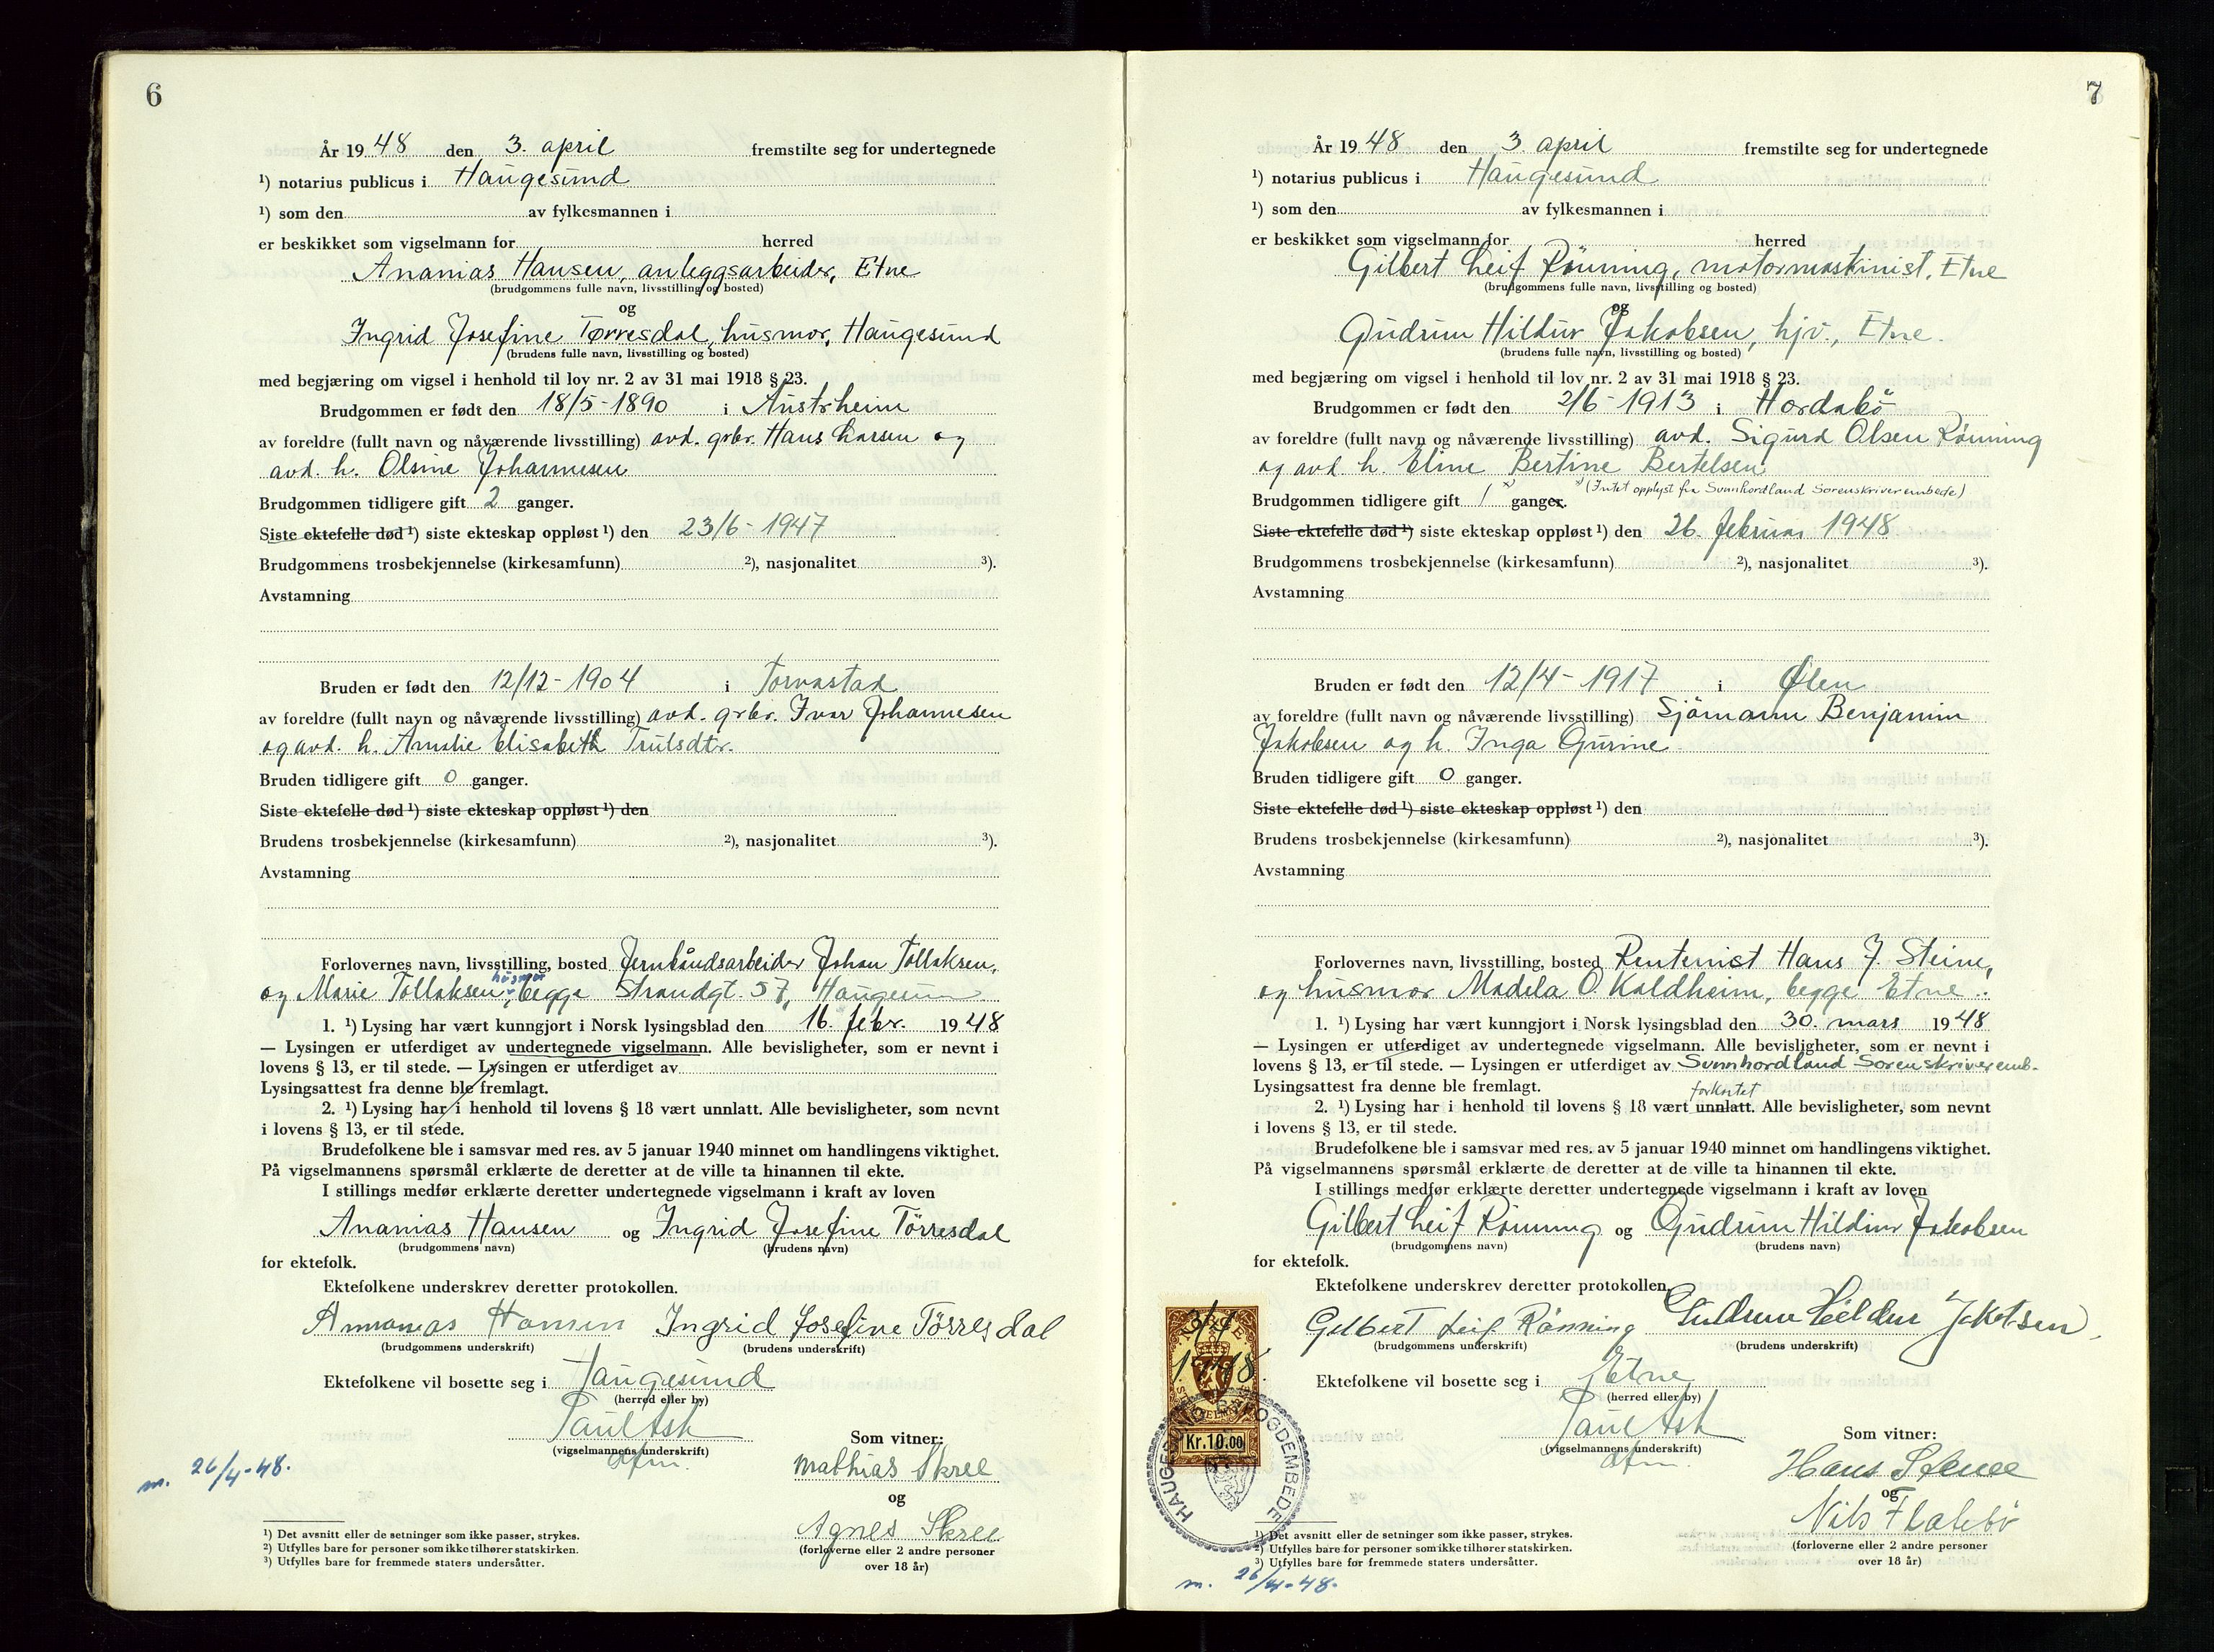 6
År 1948 den 3. april fremstilte seg for undertegnede
¹) notarius publicus i Haugesund
¹) som den av fylkesmannen i
er beskikket som vigselmann for herred
Ananias Hansen, anleggsarbeider, Etne
(brudgommens fulle navn, livsstilling og bosted)
og
Ingrid Josefine Tørresdal, husmor, Haugesund
(brudens fulle navn, livsstilling og bosted)
med begjæring om vigsel i henhold til lov nr. 2 av 31 mai 1918 § 23.
Brudgommen er født den 18/5-1890 i Austrheim
av foreldre (fullt navn og nåværende livsstilling) avd. grbr. Hans Larsen og
avd. h. Olsine Johannesen
Brudgommen tidligere gift 2 ganger.
Siste ektefelle død ¹) siste ekteskap oppløst ¹) den 23/6-1947
Brudgommens trosbekjennelse (kirkesamfunn) ²), nasjonalitet ³).
Avstamning
Bruden er født den 12/12-1904 i Torvastad
av foreldre (fullt navn og nåværende livsstilling) avd. grbr. Ivar Johannesen
og avd. h. Amalie Elisabeth Trulsdtr.
Bruden tidligere gift 0 ganger.
Siste ektefelle død ¹) siste ekteskap oppløst ¹) den
Brudens trosbekjennelse (kirkesamfunn) ²), nasjonalitet ³).
Avstamning
Forlovernes navn, livsstilling, bosted Jernbåndsarbeider Johan Tollaksen,
husmor
og Marie Tollaksen, begge Strandgt. 57, Haugesun
1. ¹) Lysing har vært kunngjort i Norsk lysingsblad den 16. febr. 1948
— Lysingen er utferdiget av undertegnede vigselmann. Alle bevisligheter, som er nevnt i
lovens § 13, er til stede. — Lysingen er utferdiget av
Lysingsattest fra denne ble fremlagt.
2. ¹) Lysing har i henhold til lovens § 18 vært unnlatt. Alle bevisligheter, som nevnt
i lovens § 13, er til stede.
Brudefolkene ble i samsvar med res. av 5 januar 1940 minnet om handlingens viktighet.
På vigselmannens spørsmål erklærte de deretter at de ville ta hinannen til ekte.
I stillings medfør erklærte deretter undertegnede vigselmann i kraft av loven
Ananias Hansen og Ingrid Josefine Törresdal
(brudgommens navn) (brudens navn)
for ektefolk.
Ektefolkene underskrev deretter protokollen.
Annanias Hansen Ingrid Josefine Törresdal
(brudgommens underskrift) (brudens underskrift)
Ektefolkene vil bosette seg i Haugesund
(herred eller by)
Paul Ask
(vigselmannens underskrift)
Som vitner:
m. 26/4-48.
Mathias Skree
og
Agnes Skree
(forloverne eller 2 andre personer
over 18 år)
¹) Det avsnitt eller de setninger som ikke passer, strykes.
²) Utfylles bare for personer som ikke tilhører statskirken.
³) Utfylles bare for fremmede staters undersåtter.
7
År 1948 den 3. april fremstilte seg for undertegnede
¹) notarius publicus i Haugesund
¹) som den av fylkesmannen i
er beskikket som vigselmann for herred
Gilbert Leif Rönning, motormaskinist, Etne
(brudgommens fulle navn, livsstilling og bosted)
og
Gudrun Hildur Jakobsen, hjv., Etne.
(brudens fulle navn, livsstilling og bosted)
med begjæring om vigsel i henhold til lov nr. 2 av 31 mai 1918 § 23.
Brudgommen er født den 2/6-1913 i Hordabö
av foreldre (fullt navn og nåværende livsstilling) avd. Sigurd Olsen Rönning
og avd. h. Eline Bertine Bertelsen
Brudgommen tidligere gift 1 x) ganger. x) (Intet opplyst fra Sunnhordland Sorenskriverembede)
Siste ektefelle død ¹) siste ekteskap oppløst ¹) den 26. februar 1948
Brudgommens trosbekjennelse (kirkesamfunn) ²), nasjonalitet ³).
Avstamning
Bruden er født den 12/4-1917 i Ølen
av foreldre (fullt navn og nåværende livsstilling) Sjömann Benjamin
Jakobsen og h. Inga Gurine
Bruden tidligere gift 0 ganger.
Siste ektefelle død ¹) siste ekteskap oppløst ¹) den
Brudens trosbekjennelse (kirkesamfunn) ²), nasjonalitet ³).
Avstamning
Forlovernes navn, livsstilling, bosted Rentenist Hans J. Steine,
og husmor Madela O. Kaldheim, begge Etne.
1. ¹) Lysing har vært kunngjort i Norsk lysingsblad den 30. mars 1948
— Lysingen er utferdiget av undertegnede vigselmann. Alle bevisligheter, som er nevnt i
lovens § 13, er til stede. — Lysingen er utferdiget av Sunnhordland Sorenskriveremb.
Lysingsattest fra denne ble fremlagt.
forkortet
2. ¹) Lysing har i henhold til lovens § 18 vært unnlatt. Alle bevisligheter, som nevnt
i lovens § 13, er til stede.
Brudefolkene ble i samsvar med res. av 5 januar 1940 minnet om handlingens viktighet.
På vigselmannens spørsmål erklærte de deretter at de ville ta hinannen til ekte.
I stillings medfør erklærte deretter undertegnede vigselmann i kraft av loven
Gilbert Leif Rönning og Gudrun Hildur Jakobsen
(brudgommens navn) (brudens navn)
for ektefolk.
Ektefolkene underskrev deretter protokollen.
Gilbert Leif Rönning Gudrun Hildur Jakobsen
(brudgommens underskrift) (brudens underskrift)
Ektefolkene vil bosette seg i Etne
(herred eller by)
Paul Ask
(vigselmannens underskrift)
Som vitner:
Hans Steine
og
Nils Flatebö
(forloverne eller 2 andre personer
over 18 år)
NORGE
3/4
1948.
Kr. 10.00
HAUGESUND BYFOGDEMBEDE
¹) Det avsnitt eller de setninger som ikke passer, strykes.
²) Utfylles bare for personer som ikke tilhører statskirken.
³) Utfylles bare for fremmede staters undersåtter.
m. 26/4-48.